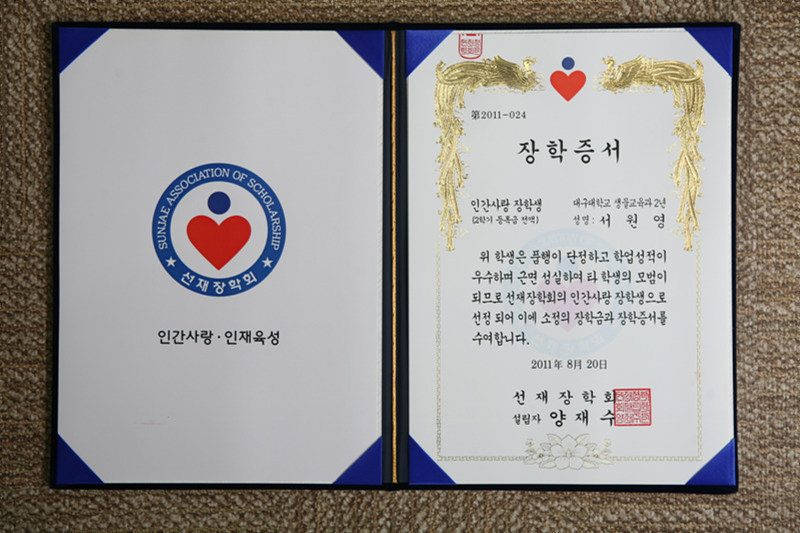 SUNJAE ASSOCIATION OF SCHOLARSHIP
선재장학회
인간사랑·인재육성
제2011-024
장학증서
인간사랑 장학생
(2학기 등록금 면역)
대구대학교 생물교육과 2년
성명 : 서원영
위 학생은 품행이 단정하고 학업성적이
우수하며 근면 성실하여 타 학생의 모범이
되므로 선재장학회의 인간사랑 장학생으로
선정 되어 이에 소정의 장학금과 장학증서를
수여합니다.
2011年 8月 20日
선재장학회
설립자 양재수